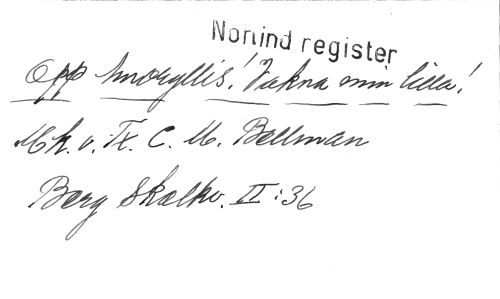 Norrind register
Opp Amaryllis! Vakna min lilla!
Mk. o. Tx. C. M. Bellman
Berg Skolkv. II:36